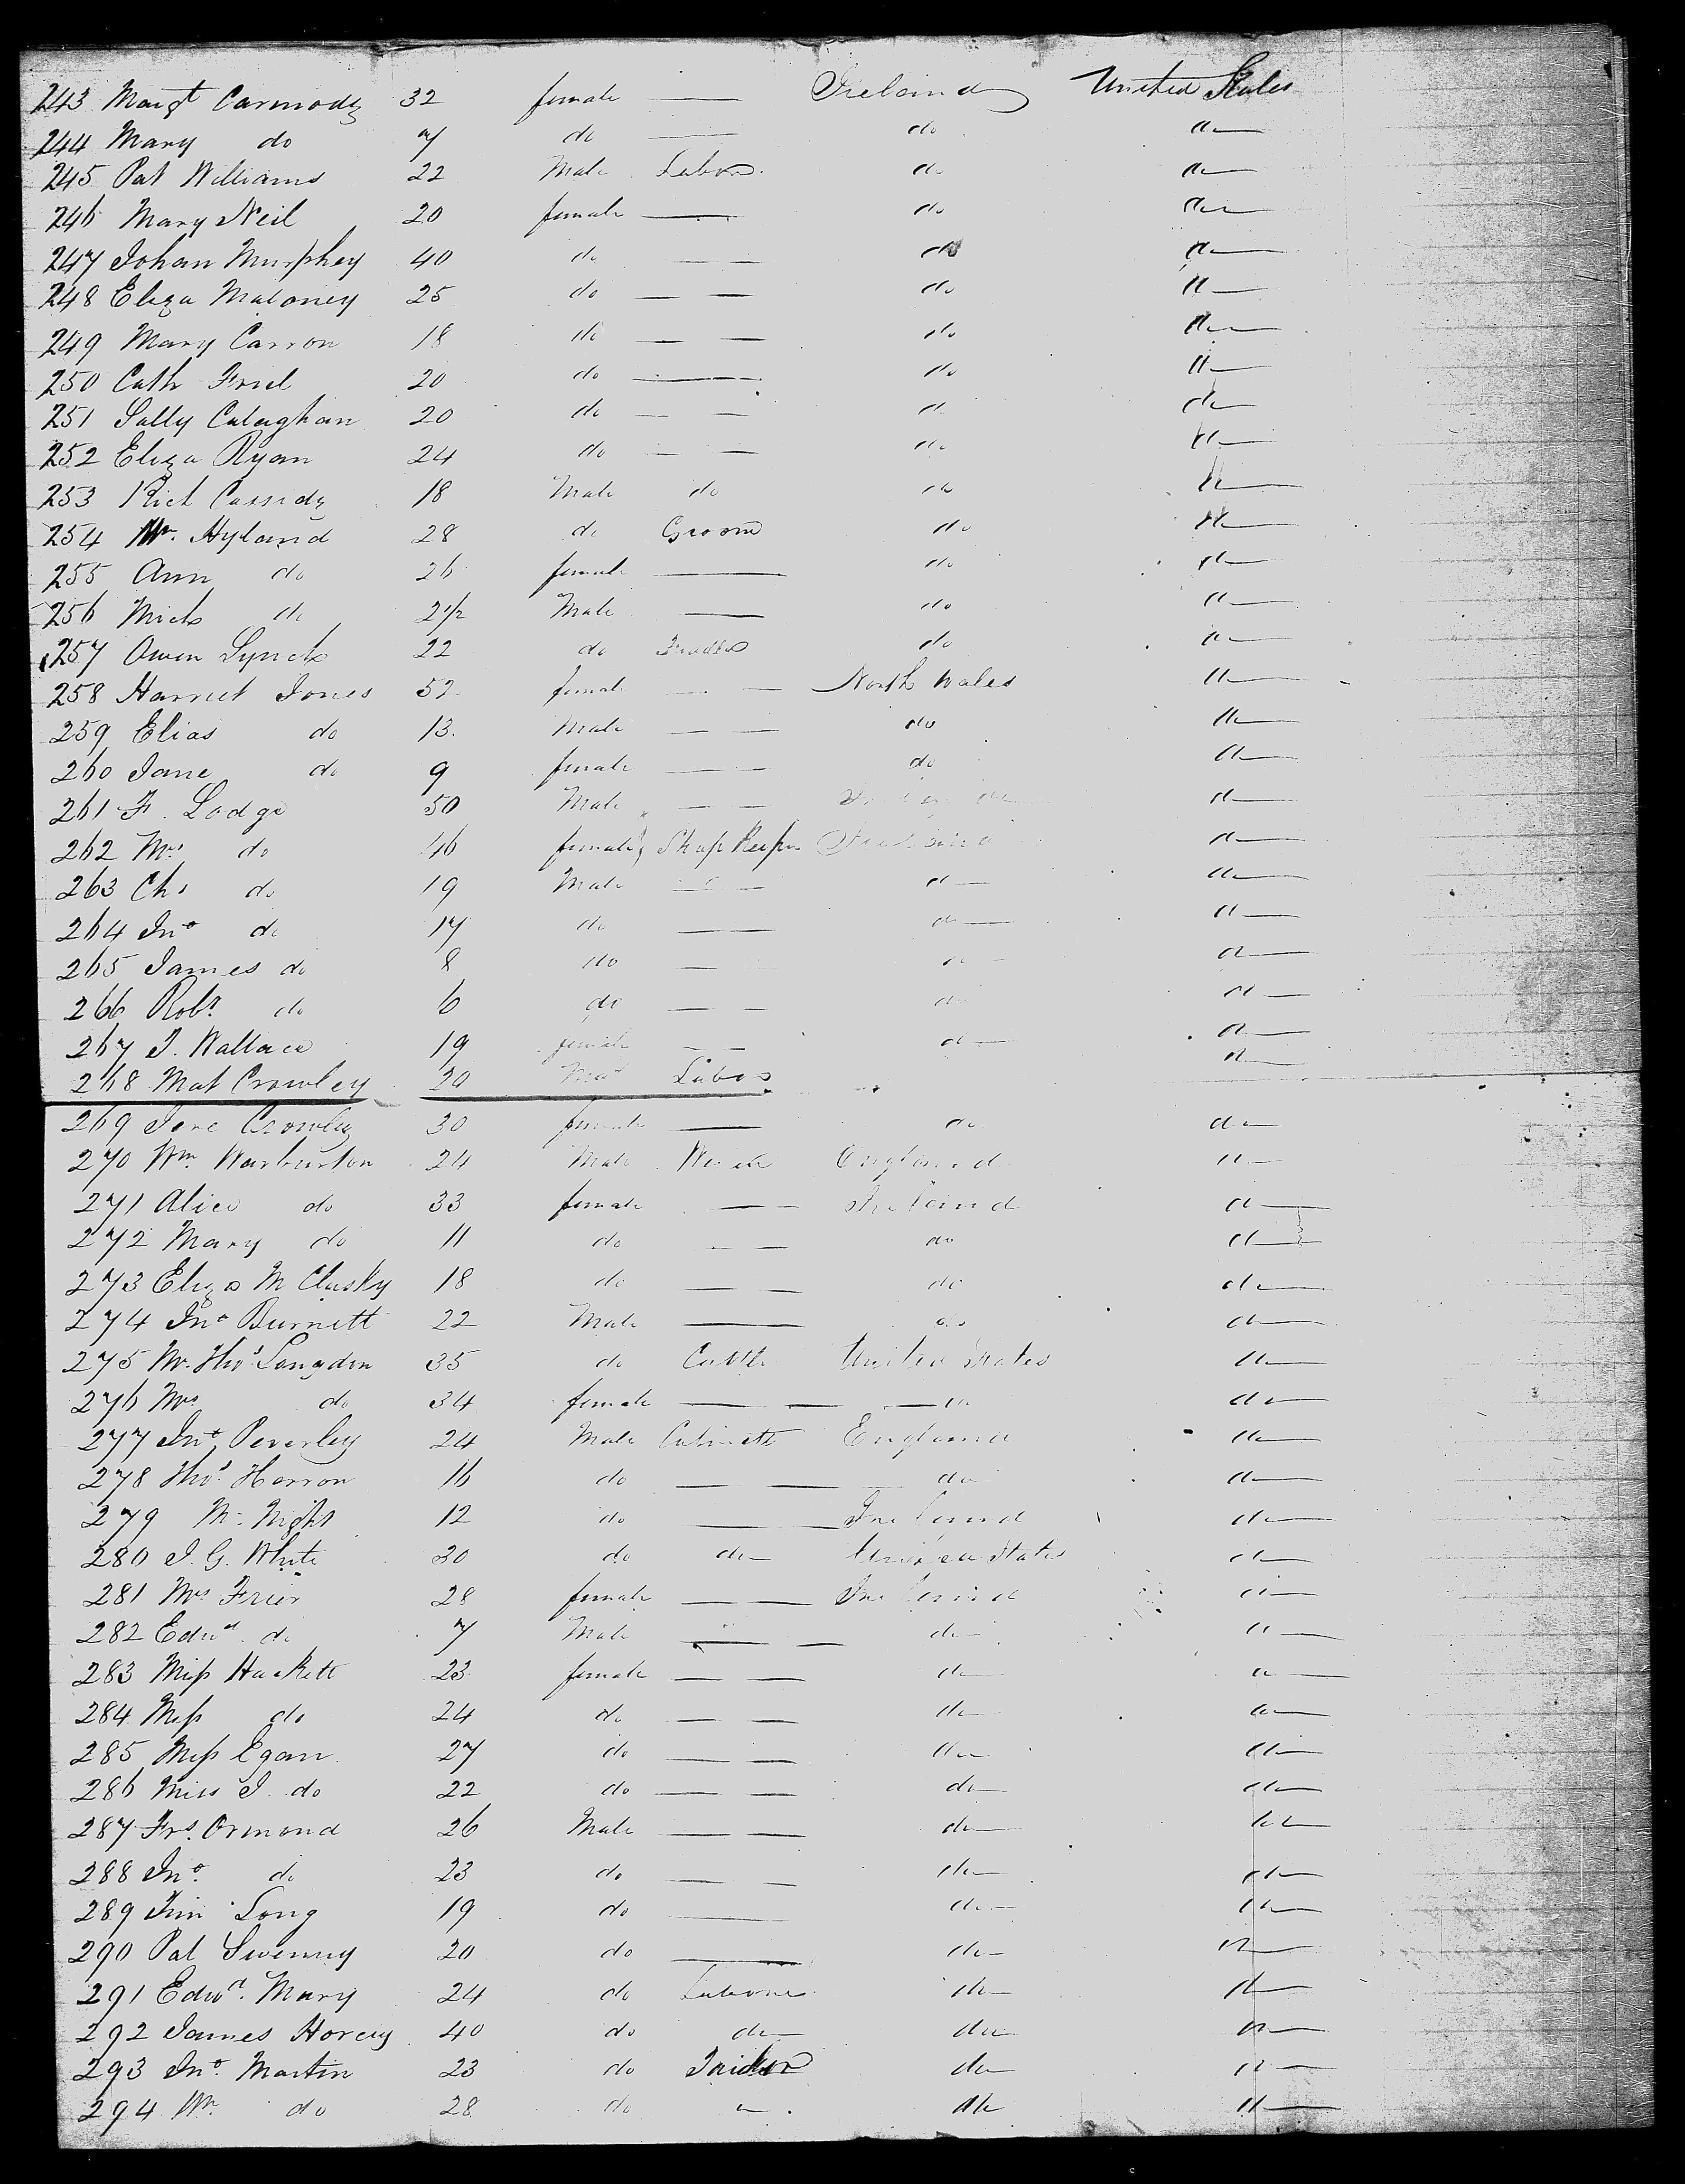 243 Margt Carmody 32 female — Ireland United States
244 Mary do 7 do — do do
245 Pat Williams 22 Male Labor do do
246 Mary Neil 20 female — do do
247 Johan Murphey 40 do — — do do
248 Eliza Maloney 25 do — — do do
249 Mary Carron 18 do — — do do
250 Cath Friel 20 do — do do
251 Sally Calaghan 20 do — — do do
252 Eliza Ryan 24 do — — do do
253 Rich Cassidy 18 Male do do do
254 Wm. Hyland 28 do Groom do do
255 Ann do 26 female — do do
256 Mich do 2 1/2 Male — do do
257 Owen Lynch 22 do do do
258 Harriet Jones 52 female — — North Wales do
259 Elias do 13. Male — — do do
260 Jane do 9 female — — do do
261 F. Lodge 50 Male — — do
262 Mrs do 46 female Shop Keeper Ireland do
263 Chs do 19 Male — — do do
264 Jno do 17 do — do do
265 James do 8 do — do do
266 Robt do 6 do — — do do
267 J. Wallace 19 female — — do do
268 Mat Crowley 20 Male Labor do
269 Jere Crowley 30 female — do do
270 Wm. Warburton 24 Male England do
271 Alice do 33 female — — Ireland do
272 Mary do 11 do — — do do
273 Eliza McClusky 18 do — — do do
274 Jno Burnett 22 Male — do do
275 Mr. Thos Langdon 35 do United States do
276 Mrs do 34 female — — — do do
277 Jno Peverley 24 Male Cabinett England do
278 Thos. Herron 16 do — — do do
279 Mc. Night 12 do — — Ireland do
280 J. G. White 30 do do United States do
281 Mrs Frier 28 female — — Ireland do
282 Edwd. do 7 Male — — do do
283 Miss Hackett 23 female — — do do
284 Miss do 24 do — — do do
285 Miss Egan 27 do — — do do
286 Miss J. do 22 do — — do do
287 Frs. Ormond 26 Male — — do do
288 Jno. do 23 do — — do do
289 Tim Long 19 do — do do
290 Pat Swenny 20 do — do do
291 Edwd. Mary 24 do Laborer do do
292 James Horey 40 do do do do
293 Jno. Martin 23 do do do
294 Wm. do 28 do do do